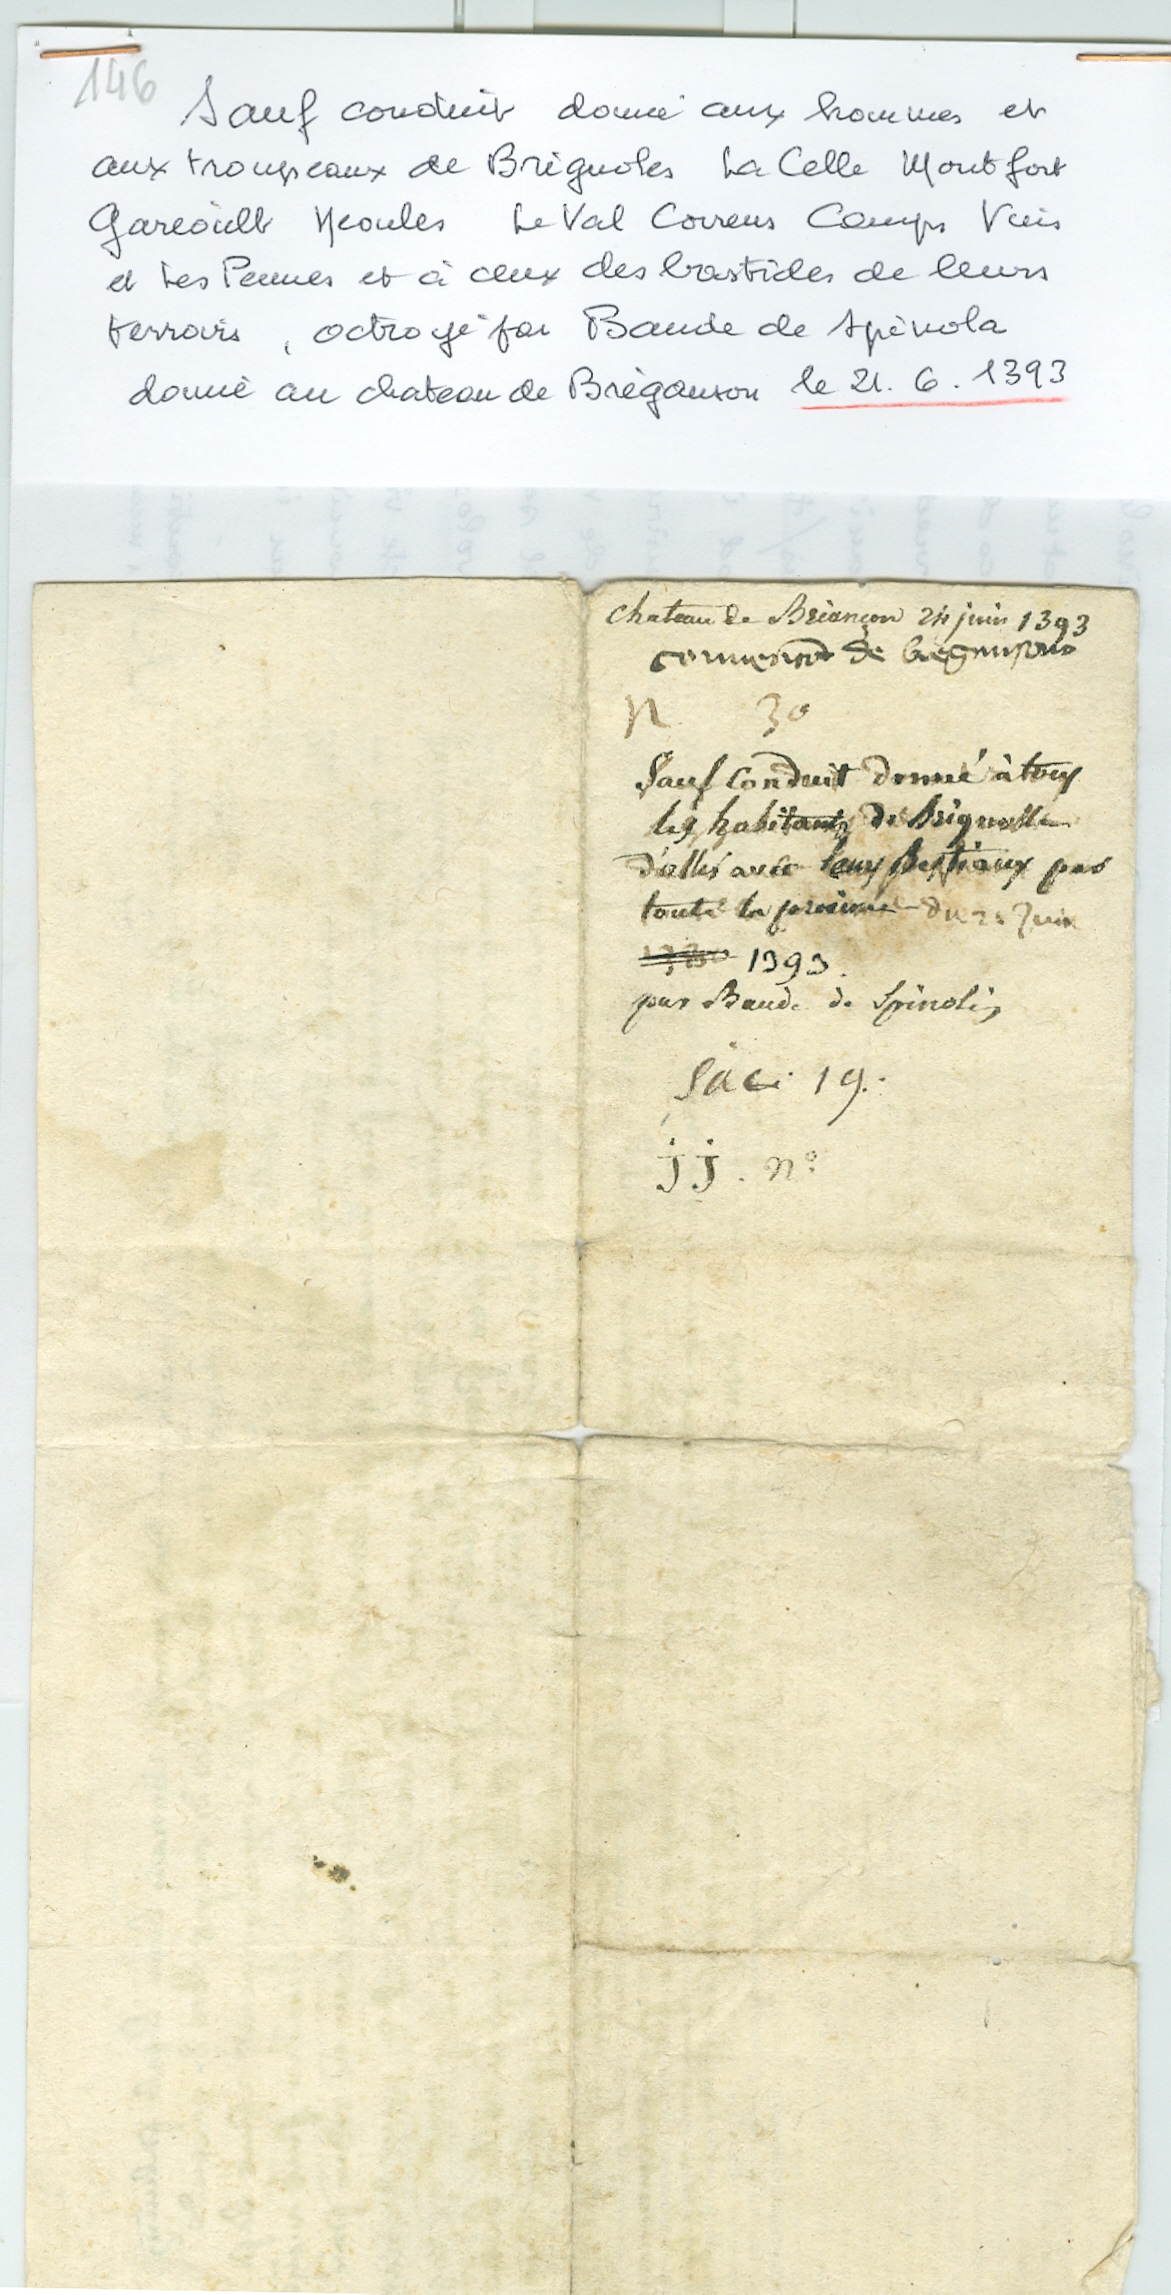 146
Sauf conduit donné aux hommes et
aux troupeaux de Brignoles La Celle Montfort
Gareoult Neoules Le Val Correns Camps Vins
et Les Pennes et à ceux des bastides de leurs
terroirs, octroyé par Baude de Spinola
donné au chateau de Bréganson le 21. 6. 1393
Chateau de Briançon 24 juin 1393
de
N 30
Sauf Conduit donné à touts
les habitants de Brignolle
d'aller avec leurs Bestiaux par
toute la province du 21 Juin
1393.
par Baude de Spinolis
Sac 19.
jj. n°